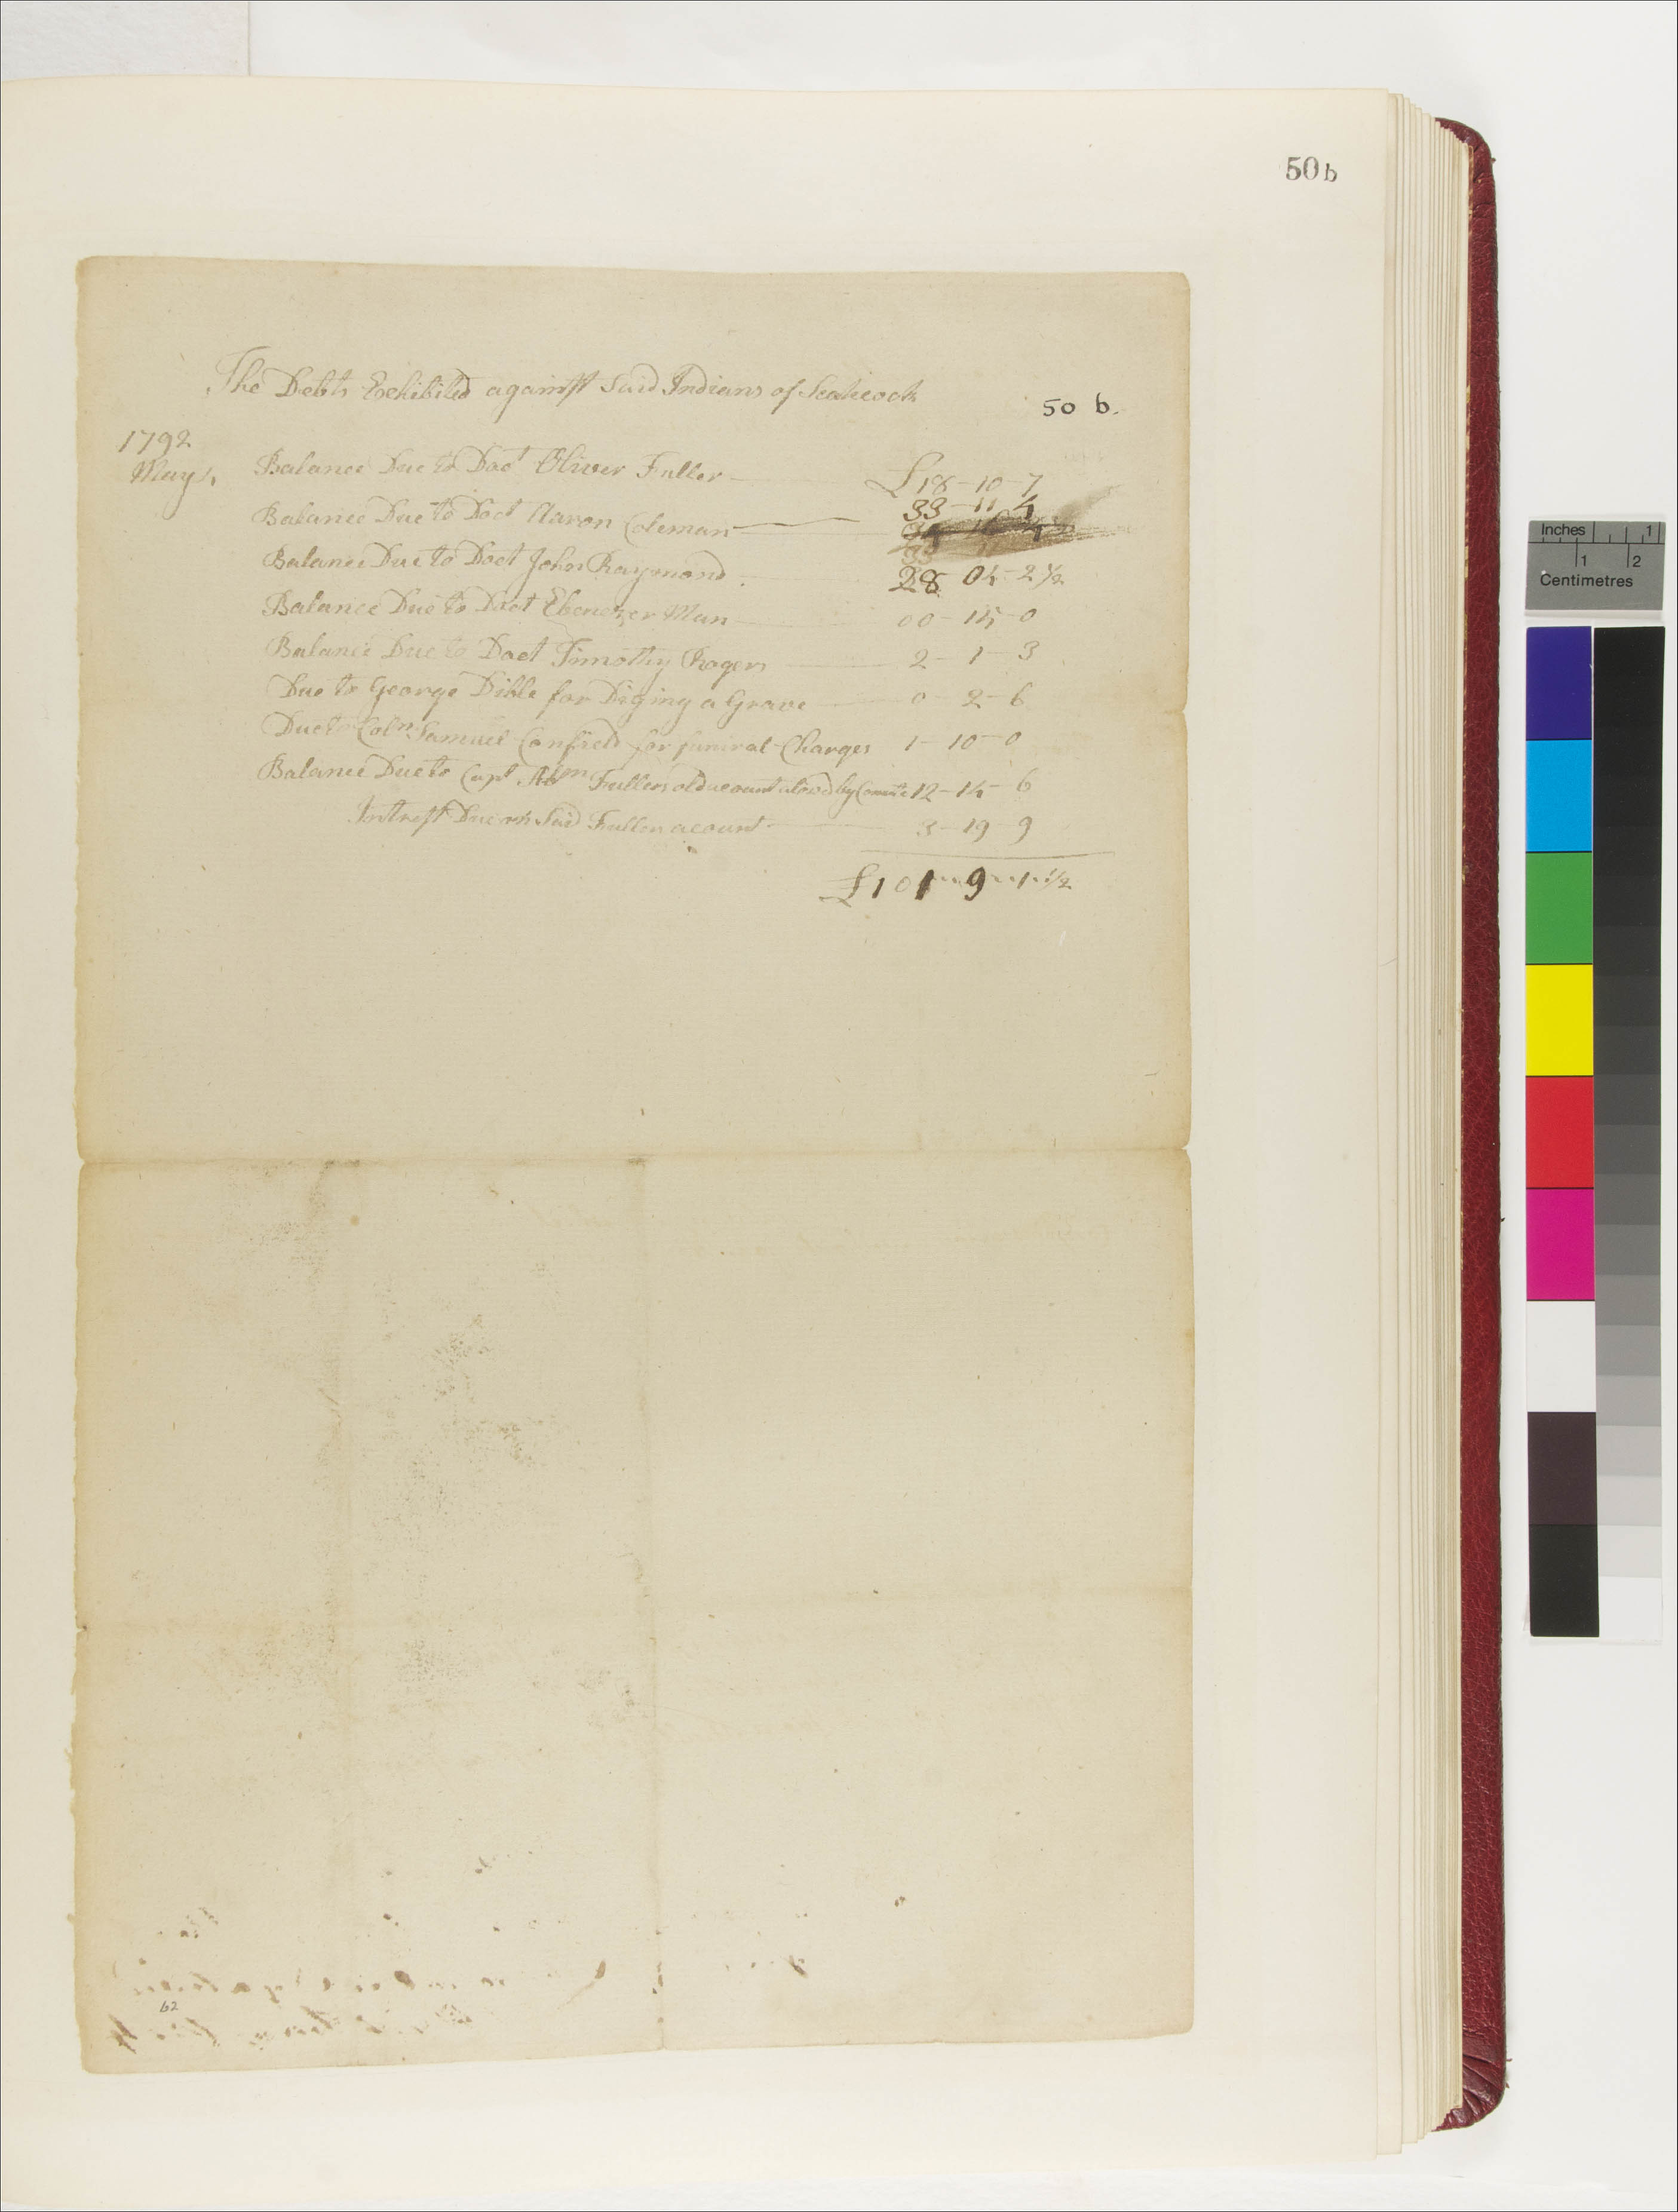 50b
The Debts Exhibited against Said Indians of Scaticook
50 b.
1792
May
Balance Due to Doct Oliver Fuller £18-10-7
Balance Due to Doct Aaron Coleman 33-11-4
Balance Due to Doct John Raymond 28 04-2 1/2
Balance Due to Doct Ebenezer Man 00-15-0
Balance Due to Doct Timothy Rogers 2-1-3
Due to George Dible for Diging a Grave 0-2-6
Due to Coln Samuel Canfield for funiral Charges 1-10-0
Balance Due to Capt Abm Fullers old account alowd by Comite 12-14-6
Intrest Due on Said Fullers account 3-19-9
£101 9 1 1/2
62
Inches 1
1 2
Centimetres